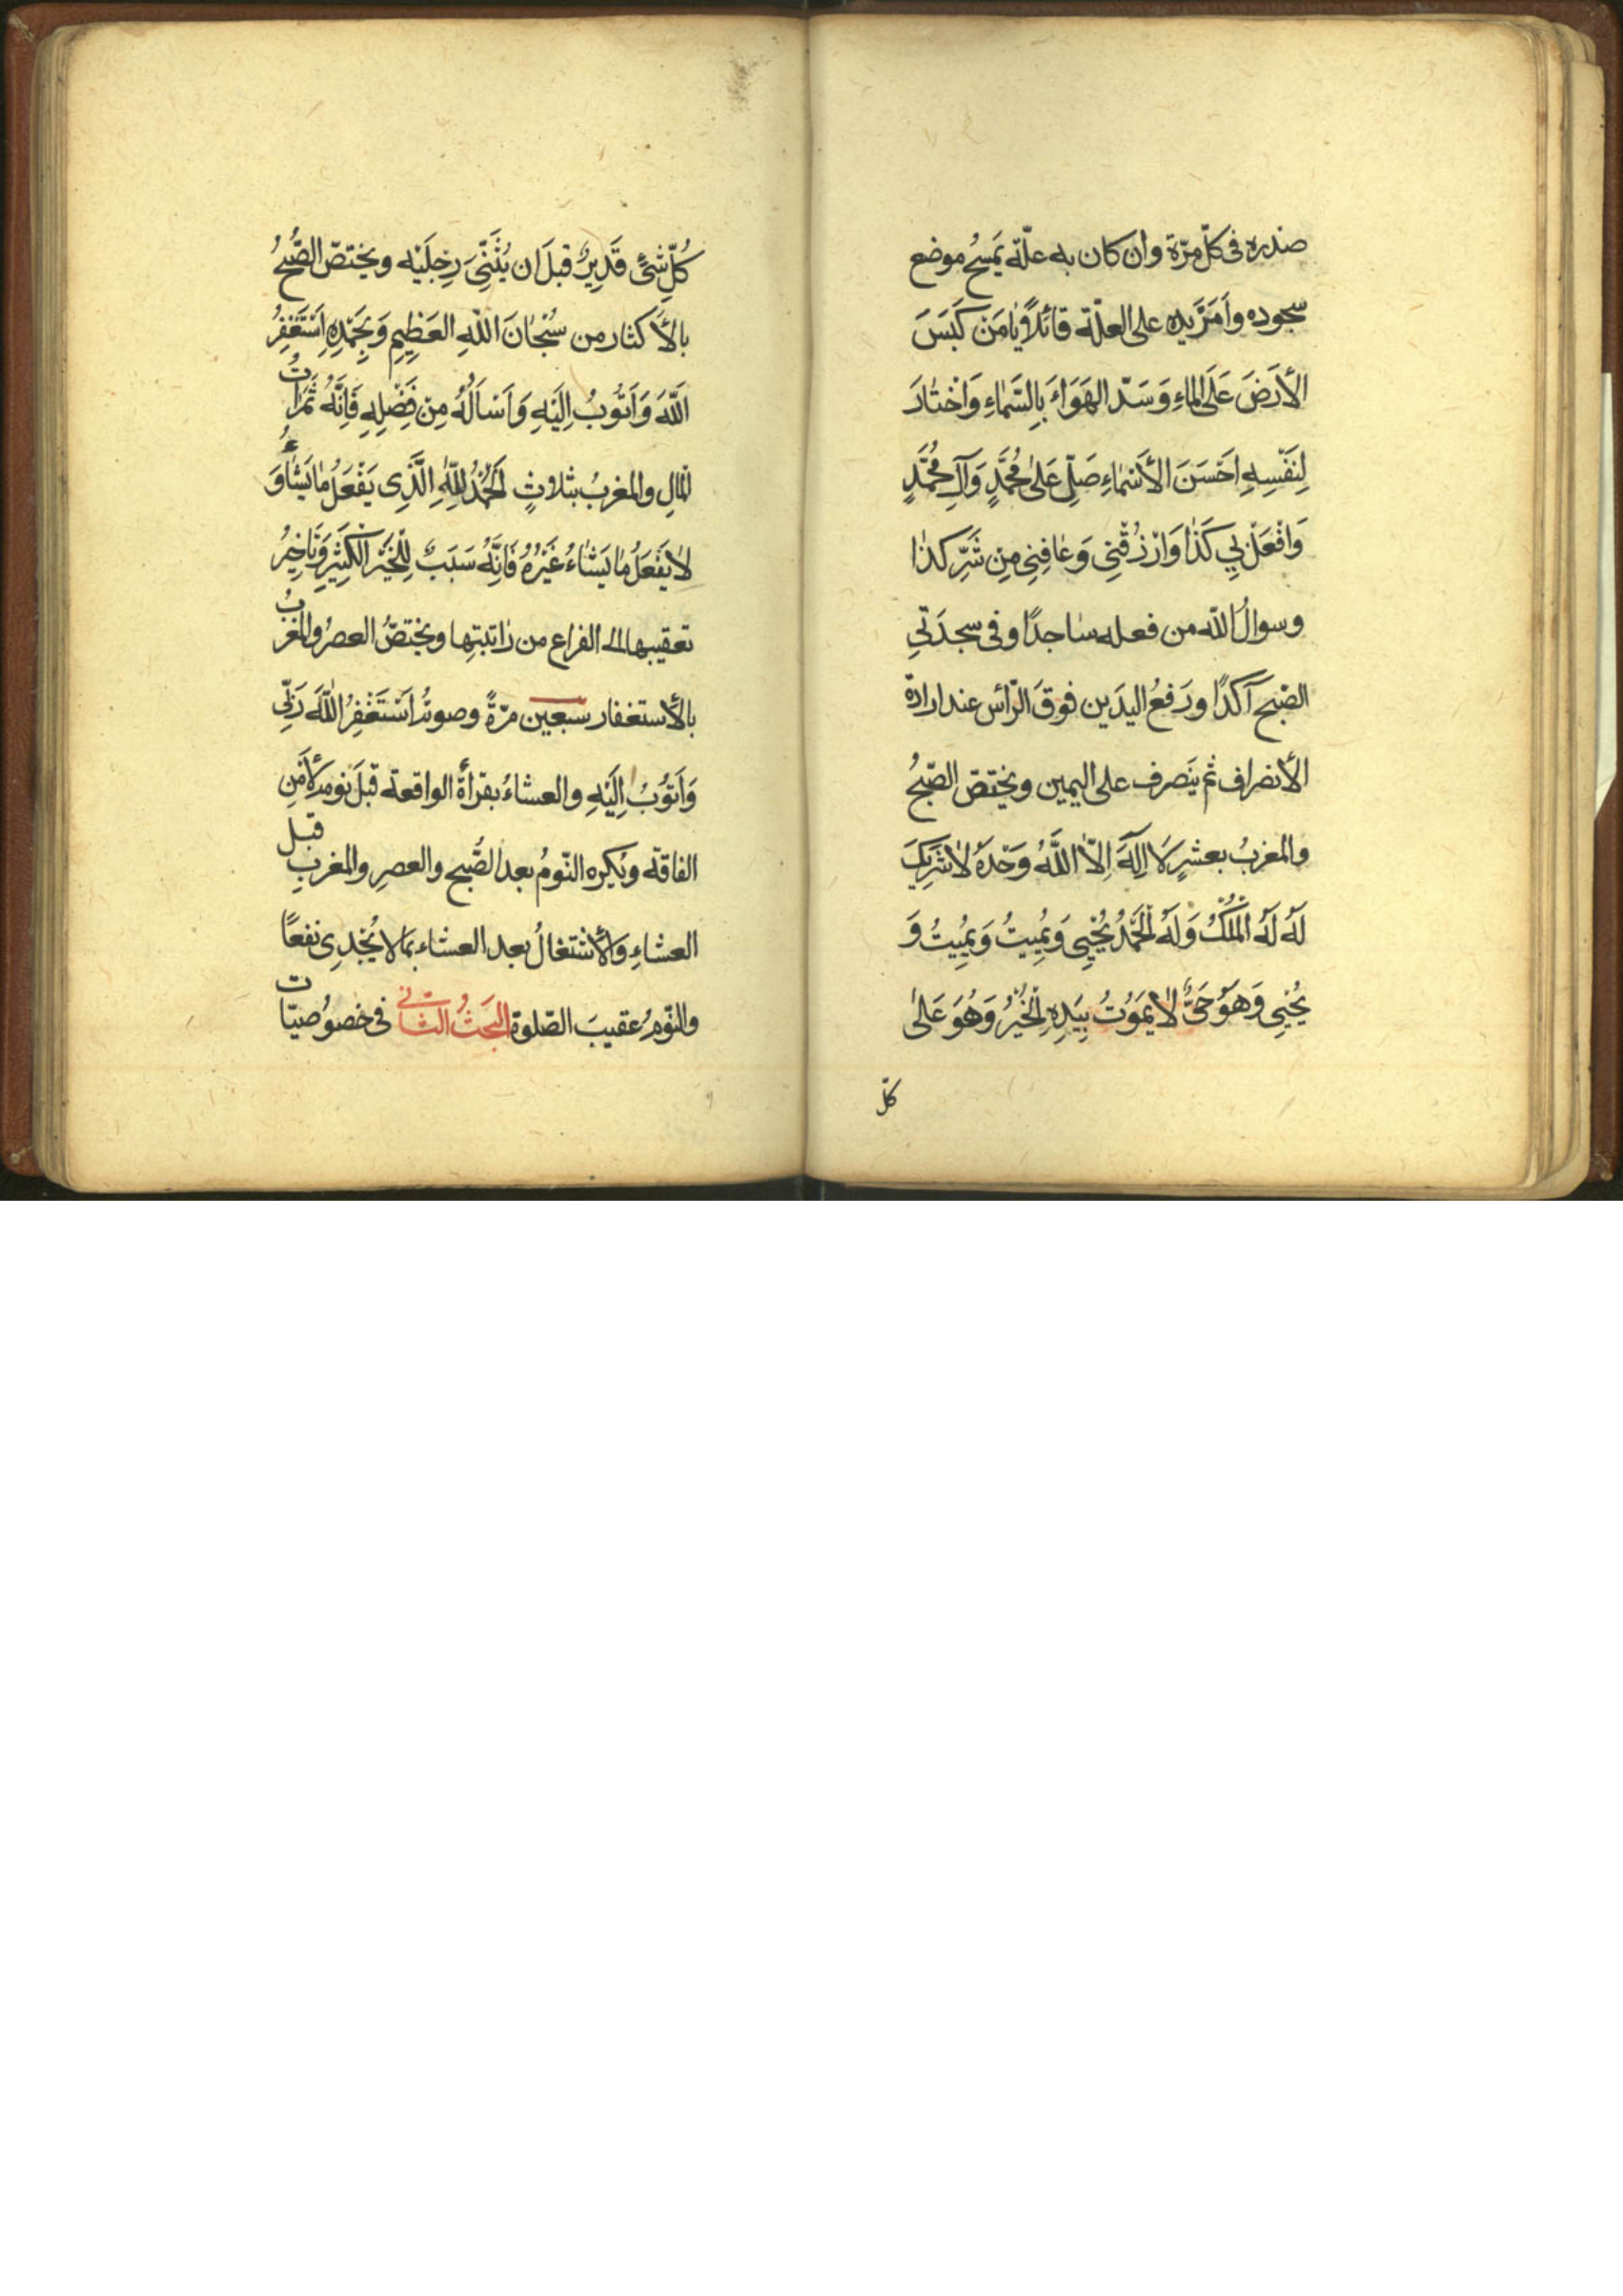 صَدْره فى كلّ مرّة وان كان به علّة يَمسحُ موضع
سجوده وأَمَرَّ يده على العلّة قائلاً يٰا مَنْ كَبَسَ
الأَرْضَ عَلَى الماءِ وَسَدّ الهَوَاءَ بِالسَّمٰاءِ وَاخْتٰارَ
لِنَفْسِهِ اَحْسَنَ الأَسْمٰاءِ صَلِّ عَلىٰ مُحَمَّدٍ وَآلِ مُحَمَّدٍ
وَافْعَلْ بِي كَذٰا وَارْزُقْنِى وَعٰافِنِى مِنْ شَرِّ كَذٰا
وسوالُ اللّه من فعله ساجدًا وفى سجدَتَي
الصّبح آكدًا ورَفعُ اليدَين فوقَ الرّأس عند ارادة
الأنصراف ثم ينَصرف على اليمين ويختصّ الصّبحُ
والمغربُ بعشرٍ لَا اِلٰهَ اِلّا اللَّهُ وَحْدَهُ لاٰ شَرِيكَ
لَهُ لَهُ الْمُلْكُ وَلَهُ الْحَمْدُ يُحْيِى وَيُمِيتُ وَيُمِيتُ وَ
يُحْيِى وَهُوَ حَىٌّ لاٰ يَمُوتُ بِيَدِهِ الْخَيْرُ وَهُوَ عَلىٰ
كلّ
كُلِّ شىْءٍ قَدِيرٌ قبلَ ان يُثَنِّىَ رِجلَيْه ويختصّ الصُّبحُ
بالأكثار من سُبْحٰانَ اللّٰهِ العَظِيمِ وَبِحَمْدِهِ اَسْتَغْفِرُ
اللّٰهَ وَاَتُوبُ اِلَيْهِ وَاَسْاَلُهُ مِنْ فَضْلِهِ فَاِنَّهُ ثَمَرٰاتُ
المٰالِ والمغربُ بثلاثٍ اَلحَمْدُ لِلّٰهِ الَّذِى يَفْعَلُ مٰا يَشٰاءُ وَ
لاٰ يَفْعَلُ مٰا يَشٰاءُ غَيْرُهُ فَاِنَّهُ سَبَبٌ لِلْخَيْرِ الْكَثِيرِ وَتَاخِيرُ
تعقيبها الى الفراغ من راتبتِها ويختصُّ العصرُ والمغربُ
بالأستغفار سبعين مرّةً وصورتُه اَسْتَغْفِرُ اللّٰهَ رَبّى
وَاَتُوبُ اِلَيْهِ والعشاءُ بقرأة الواقعة قبلَ نومه لأمنِ
الفاقة ويُكره النّومُ بعد الصُّبح والعصرِ والمغربِ قبل
العشاءِ والأشتغالُ بعد العشاء بما لا يُجْدِى نفعًا
والنّومُ عقيبَ الصّلوة البَحثُ الثّانى فى خصُوصيّات